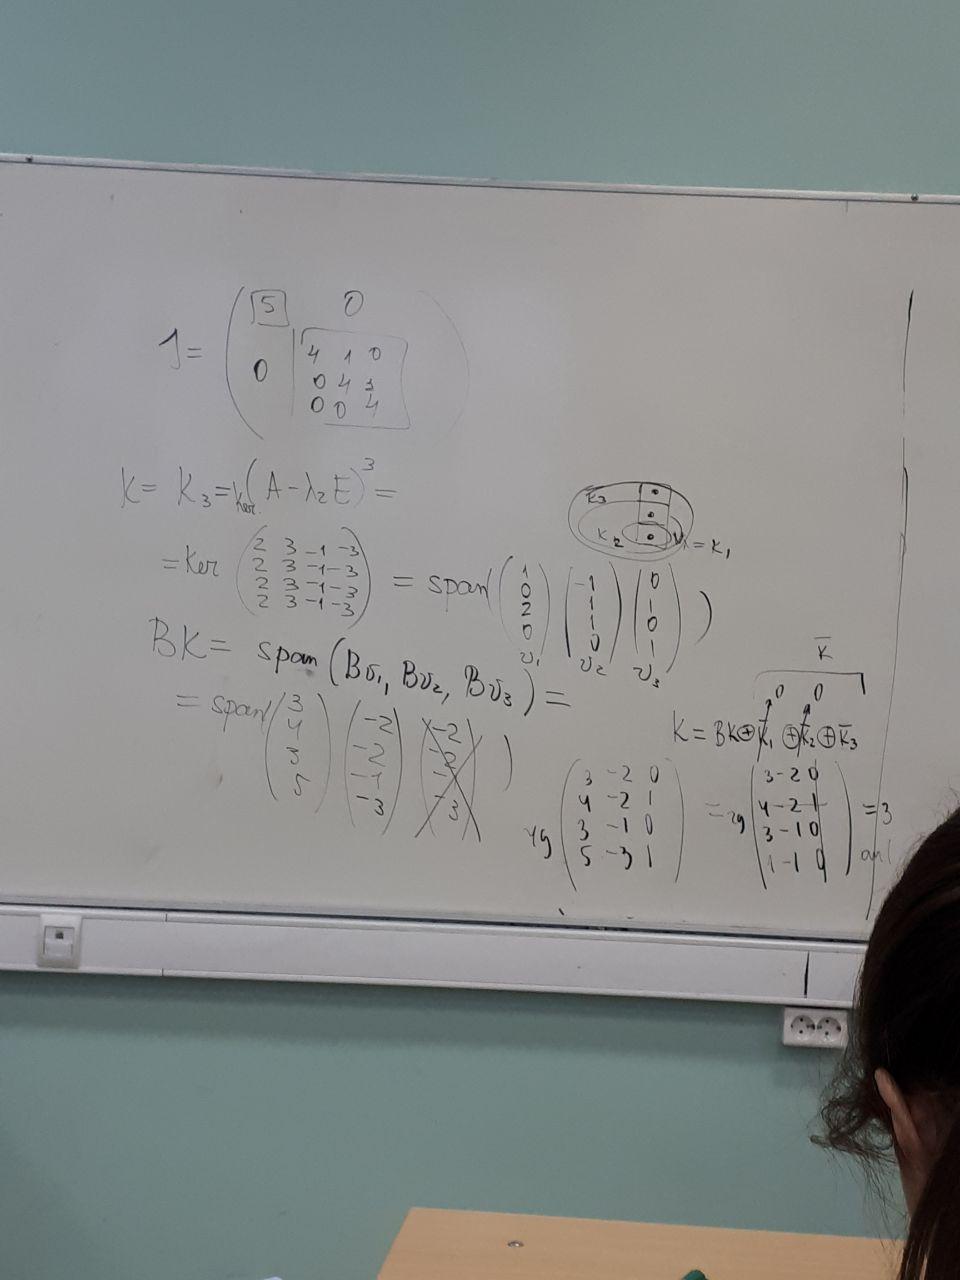 J = ( 5 0
0 4 1 0
0 4 1
0 0 4 )
K = K₃ = Ker (A - λ₂E)³ =
K̄₃
K₂ = K₁
= Ker ( 2 3 -1 -3
2 3 -1 -3
2 3 -1 -3
2 3 -1 -3 ) = span ( ( 1 0 2 0 ) ( -1 1 1 0 ) ( 0 1 0 1 ) )
v₁ v₂ v₃
BK = span (Bv₁, Bv₂, Bv₃) =
= span ( ( 3 4 3 5 ) ( -2 -2 -1 -3 ) )
K̄
0 0
K = BK ⊕ K̄₁ ⊕ K̄₂ ⊕ K̄₃
rg ( 3 -2 0
4 -2 1
3 -1 0
5 -3 1 )
= rg ( 3 -2 0
4 -2 1
3 -1 0
1 -1 0 ) = 3